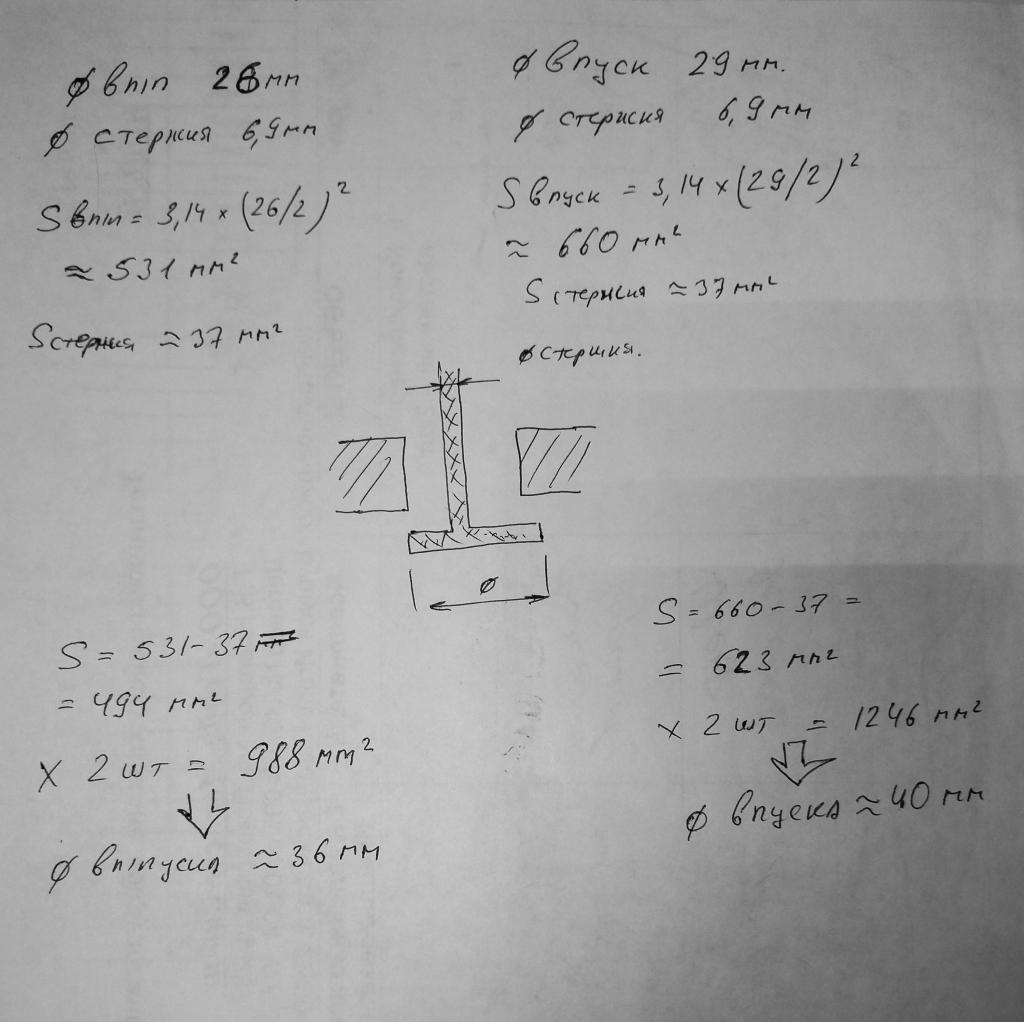 ϕ вып 26 мм
ϕ стержня 6,9 мм
S вып = 3,14 × (26/2)²
≈ 531 мм²
S стержня ≈ 37 мм²
ϕ впуск 29 мм.
ϕ стержня 6,9 мм
S впуск = 3,14 × (29/2)²
≈ 660 мм²
S стержня ≈ 37 мм²
ϕ стержня.
ϕ
S = 531 - 37
= 494 мм²
× 2 шт = 988 мм²
ϕ выпуска ≈ 36 мм
S = 660 - 37 =
= 623 мм²
× 2 шт = 1246 мм²
ϕ впуска ≈ 40 мм